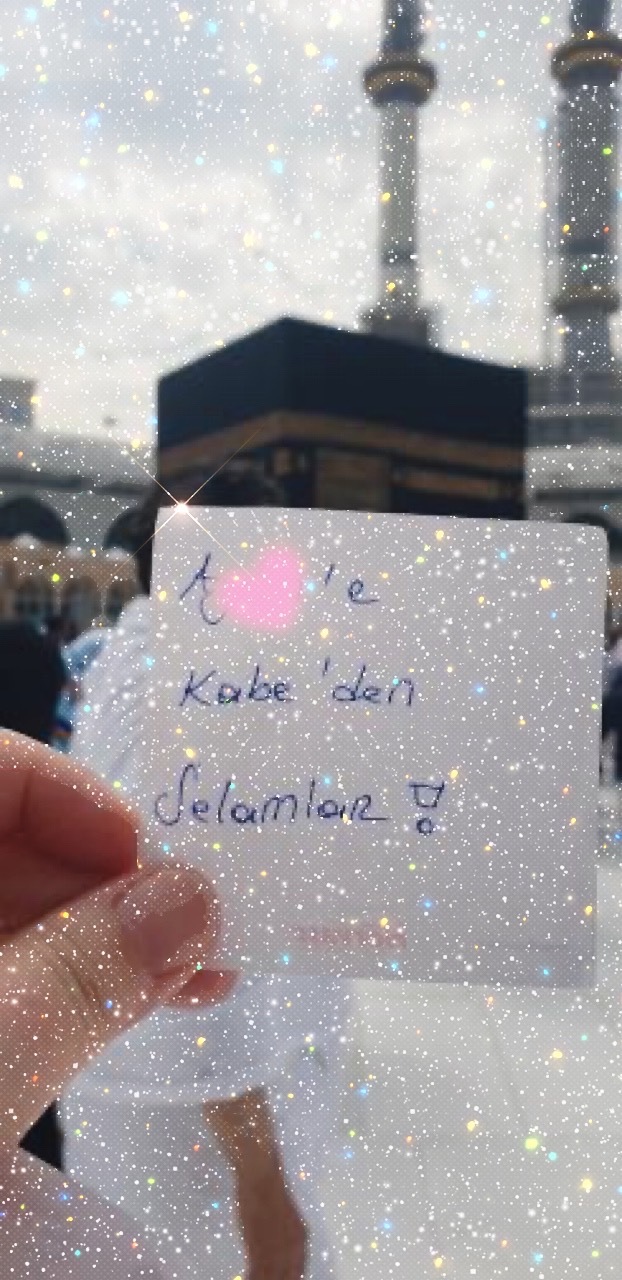 A 'e
Kabe'den
Selamlar!